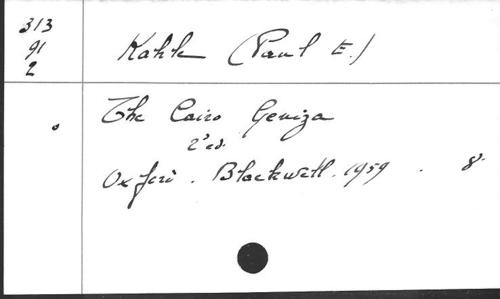 313
91
2
Kahle (Paul E.)
The Cairo Geniza
2ᵉ ed.
Oxford . Blackwell . 1959 . 8°